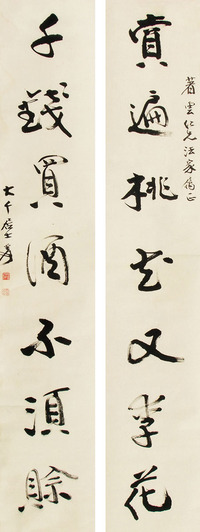 雲仁兄法家正
賞遍桃花又李花
千錢買酒不須賒
大千居士爰